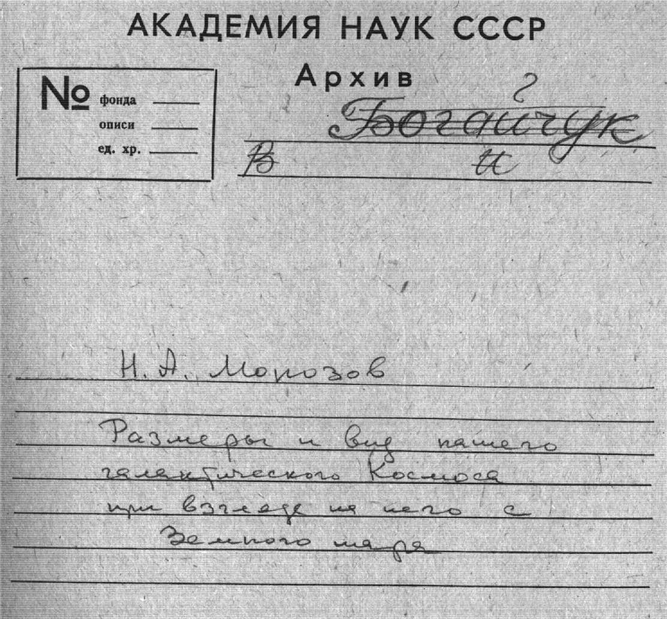 АКАДЕМИЯ НАУК СССР
Архив
№ фонда
описи
ед. хр.
?
Богайчук
В И
Н. А. Морозов
Размеры и вид нашего
галактического Космоса
при взгляде на него с
Земного шара